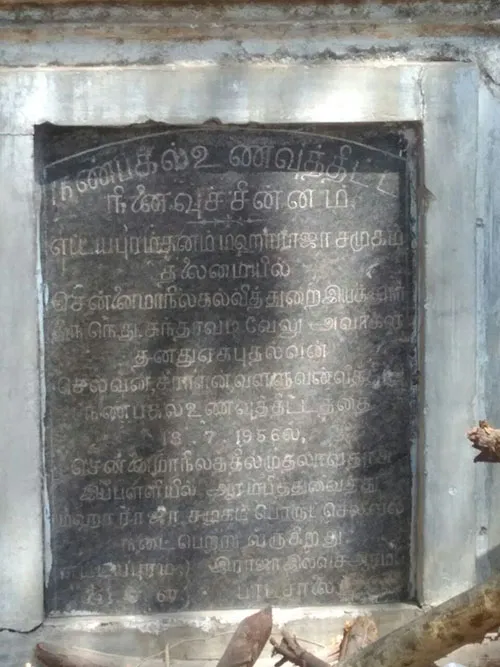 நண்பகல் உணவுத்திட்ட
நினைவுச்சின்னம்
எட்டயபுரம்தனம் மஹாராஜா சமூகம்
தலைமையில்
சென்னை மாநில கல்வித்துறை
திரு நெ.து. சுந்தரவடிவேலு அவர்கள்
தனது ஏக புதல்வன்
செல்வன்
நண்பகல் உணவுத்திட்டத்தை
18 7 1956ல்
சென்னை மாநிலத்தில் முதலாவதாக
இப்பள்ளியில் ஆரம்பித்துவைத்து
மஹாராஜா சமூகம் பொருட் செலவில்
நடைபெற்று வருகிறது
எட்டயபுரம் இராஜா இலவச ஆரம்ப
பாடசாலை